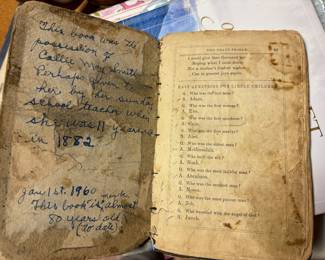 This book was the
possession of
Callie May Smith
Perhaps given to
her by her sunday
school teacher when
she was 11 years
in 1882
Jan 1st. 1960
This book is almost
80 years old
(to date)
EASY QUESTIONS FOR LITTLE CHILDREN.
Q. Who was the first man?
A. Adam.
Q. Who was the first woman?
A. Eve.
Q. Who was the first murderer?
A. Cain.
A. Abel.
Q. Who was the oldest man?
A. Methuselah.
Q. Who built the ark?
A. Noah.
Q. Who was the most faithful man?
A. Abraham.
Q. Who was the meekest man?
A. Moses.
Q. Who was the most patient man?
A. Job.
Q. Who wrestled with the angel of God?
A. Jacob.